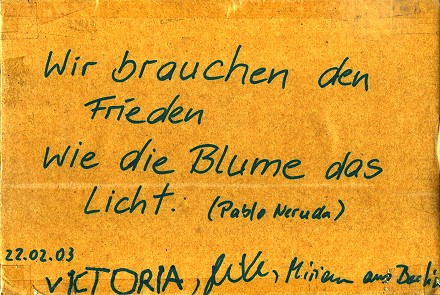 Wir brauchen den
Frieden
wie die Blume das
Licht. (Pablo Neruda)
22.02.03
VICTORIA, Miriam aus Berlin